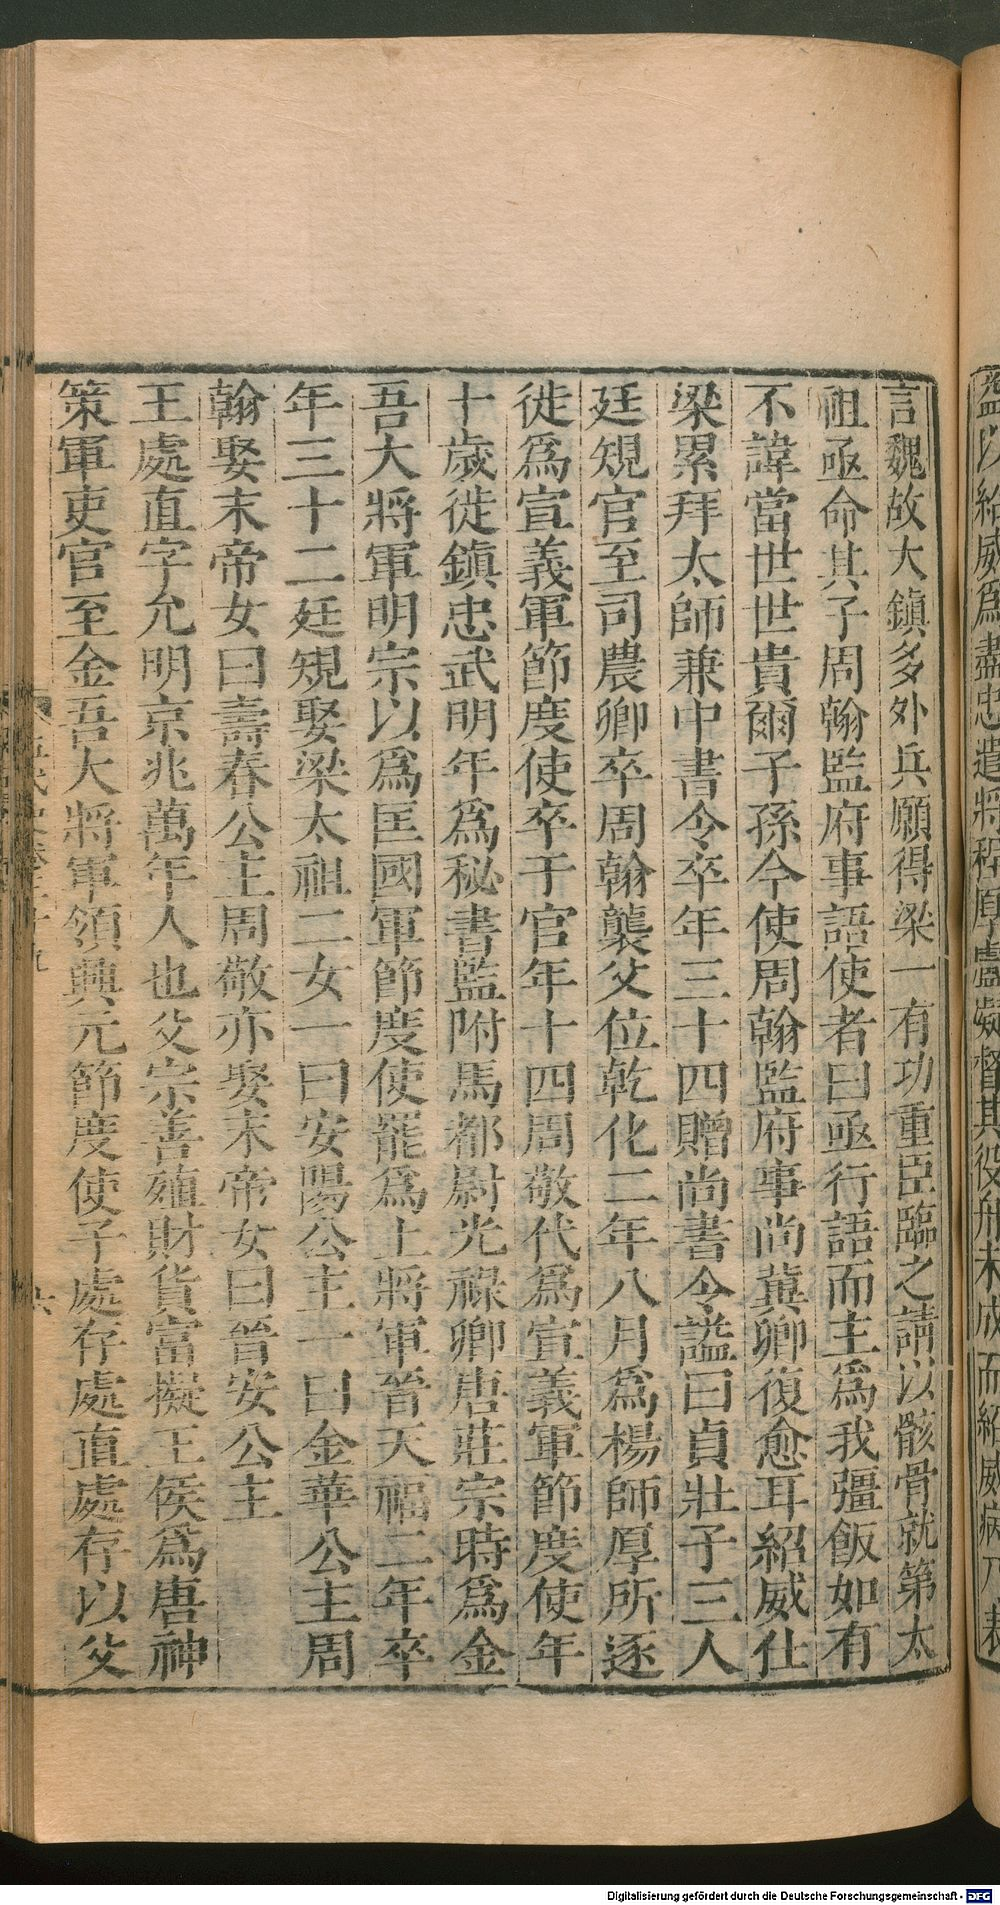 言魏故大鎮多外兵願得梁一有功重臣臨之請以骸骨就第太
祖亟命其子周翰監府事語使者曰亟行語而主爲我彊飯如有
不諱當世世貴爾子孫今使周翰監府事尚冀卿復愈耳紹威仕
梁累拜太師兼中書令卒年三十四贈尚書令謚曰貞壯子三人
廷規官至司農卿卒周翰襲父位乾化二年八月爲楊師厚所逐
徙爲宣義軍節度使卒于官年十四周敬代爲宣義軍節度使年
十歲徙鎮忠武明年爲秘書監附馬都尉光祿卿唐莊宗時爲金
吾大將軍明宗以爲匡國軍節度使罷爲上將軍晉天福二年卒
年三十二廷規娶梁太祖二女一曰安陽公主一曰金華公主周
翰娶末帝女曰壽春公主周敬亦娶末帝女曰晉安公主
王處直字允明京兆萬年人也父宗善殖財貨富擬王侯爲唐神
策軍吏官至金吾大將軍領興元節度使子處存處直處存以父
Digitalisierung gefördert durch die Deutsche Forschungsgemeinschaft - DFG